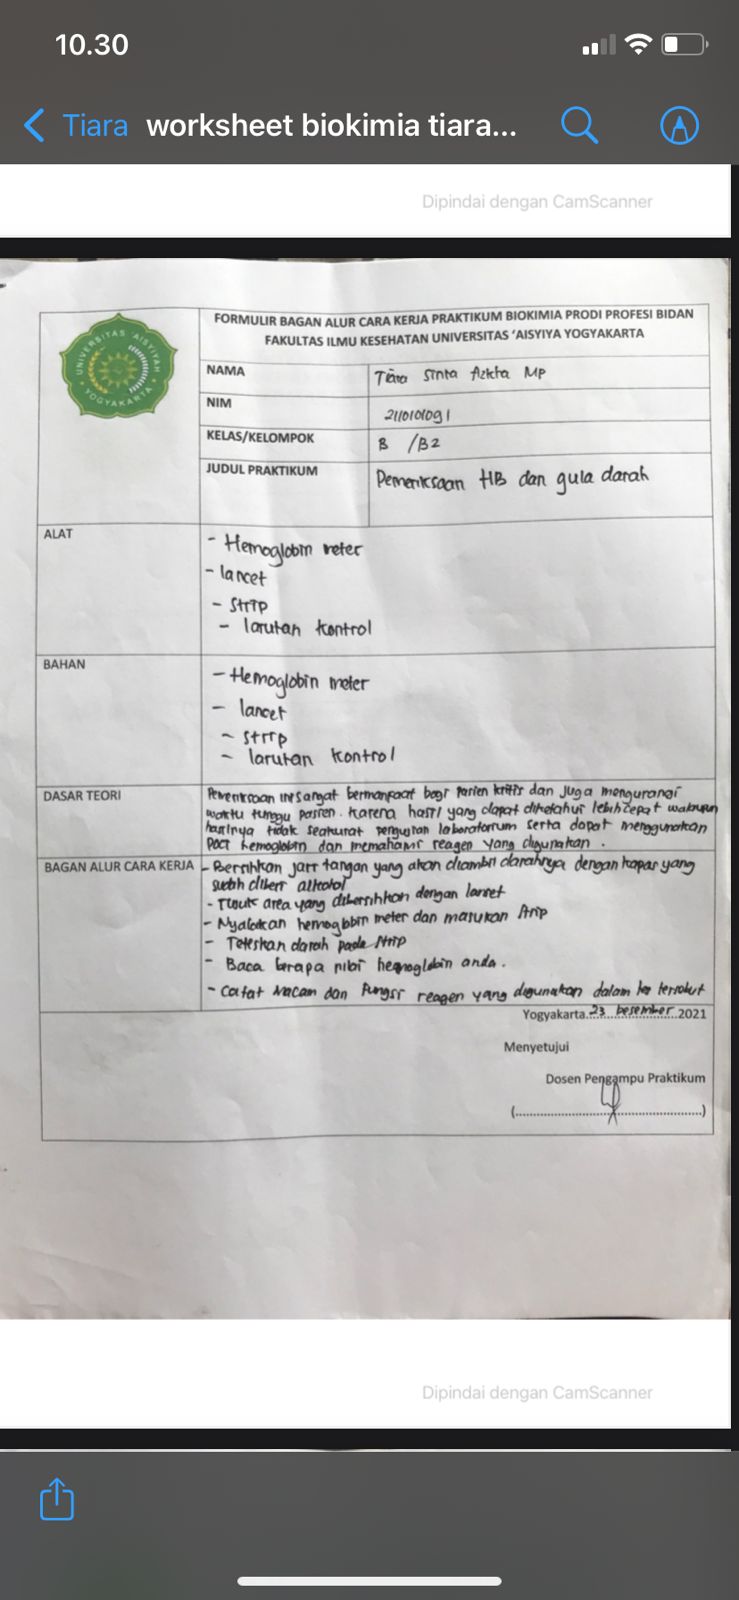 10.30
Tiara worksheet biokimia tiara...
Dipindai dengan CamScanner
UNIVERSITAS 'AISYIYAH
YOGYAKARTA
FORMULIR BAGAN ALUR CARA KERJA PRAKTIKUM BIOKIMIA PRODI PROFESI BIDAN
FAKULTAS ILMU KESEHATAN UNIVERSITAS 'AISYIYA YOGYAKARTA
NAMA Tiara Sinta MP
NIM 2110101091
KELAS/KELOMPOK B /B2
JUDUL PRAKTIKUM Pemeriksaan HB dan gula darah
ALAT
- Hemoglobin meter
- lancet
- Strip
- larutan kontrol
BAHAN
- Hemoglobin meter
- lancet
- strip
- larutan kontrol
DASAR TEORI
Pemeriksaan ini sangat bermanfaat bagi pasien kritis dan juga mengurangi
waktu tunggu pasien. karena hasil yang dapat diketahui lebih cepat walaupun
hasilnya tidak seakurat laboratorium serta dapat menggunakan
POCT hemoglobin dan memahami reagen yang digunakan.
BAGAN ALUR CARA KERJA
- Bersihkan jari tangan yang akan diambil darahnya dengan kapas yang
sudah diberi alkohol
- Tusuk area yang dibersihkan dengan lanset
- Nyalakan hemoglobin meter dan masukan strip
- Teteskan darah pada strip
- Baca berapa nilai hemoglobin anda.
- Catat Macam dan Fungsi reagen yang digunakan dalam tersebut
Yogyakarta..23..Desember..2021
Menyetujui
Dosen Pengampu Praktikum
(........................................)
Dipindai dengan CamScanner